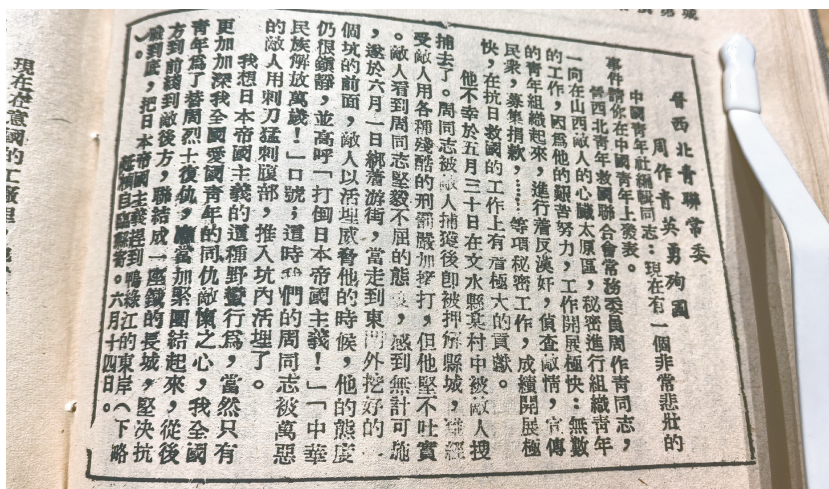 晉西北青聯常委
周作青英勇殉國
中國青年社編輯同志：現在有一個非常悲壯的
事件請你在中國青年上發表。
晉西北青年救國聯合會常務委員周作青同志，
一向在山西敵人的心臟太原區，秘密進行組織青年
的工作，因爲他的艱苦努力，工作開展極快：無數
的青年組織起來，進行着反漢奸，偵查敵情，宣傳
民衆，募集捐款，……等項秘密工作，成績開展極
快，在抗日救國的工作上有着極大的貢獻。
他不幸於五月三十日在文水縣某村中被敵人搜
捕去了。周同志被敵人捕獲後卽被押解縣城，雖經
受敵人用各種殘酷的刑罰嚴加拷打，但他堅不吐實
。敵人看到周同志堅毅不屈的態度，感到無計可施
，遂於六月一日綁着游街，當走到東門外挖好的一
個坑的前面，敵人以活埋威脅他的時候，他的態度
仍很鎭靜，並高呼「打倒日本帝國主義！」「中華
民族解放萬歲！」口號；這時我們的周同志被萬惡
的敵人用刺刀猛刺腹部，推入坑內活埋了。
我想日本帝國主義的這種野蠻行爲，當然只有
更加加深我全國愛國青年的同仇敵愾之心，我全國
青年爲了替周烈士復仇，應當加緊團結起來，從後
方到前綫到敵後方，聯結成一座鐵的長城，堅决抗
戰到底，把日本帝國主義趕到鴨綠江的東岸（下略
）。
六月十四日。
現在在意國的工廠裡